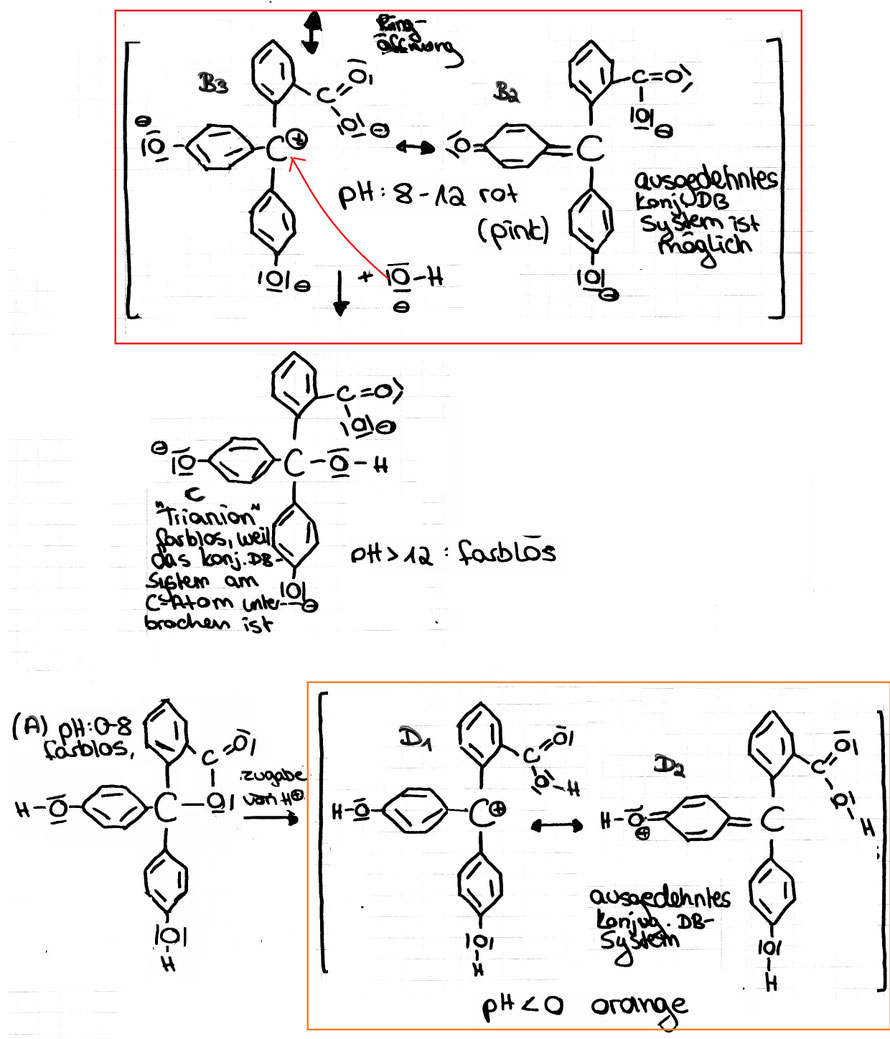 Ring-
öffnung
B3
B2
C=O
C=O
|O|⊖
|O|⊖
⊖
|O
C⊕
O
C
pH: 8-12 rot
(pink)
ausgedehntes
konj. DB
System ist
möglich
|O|⊖
+ |O-H
⊖
|O|⊖
C=O
|O|⊖
⊖
|O
C-O-H
C
"Trianion"
farblos, weil
das konj. DB-
System am
C-Atom unter-
brochen ist
|O|⊖
pH>12: farblos
(A) pH:0-8
farblos,
C=O
O|
H-O
C
|O|
H
zugabe
von H⊕
D1
C=O
O-H
H-O
C⊕
|O|
H
D2
C=O
O
H
H-O
⊕
C
|O|
H
ausgedehntes
konjug. DB-
System
pH<0 orange